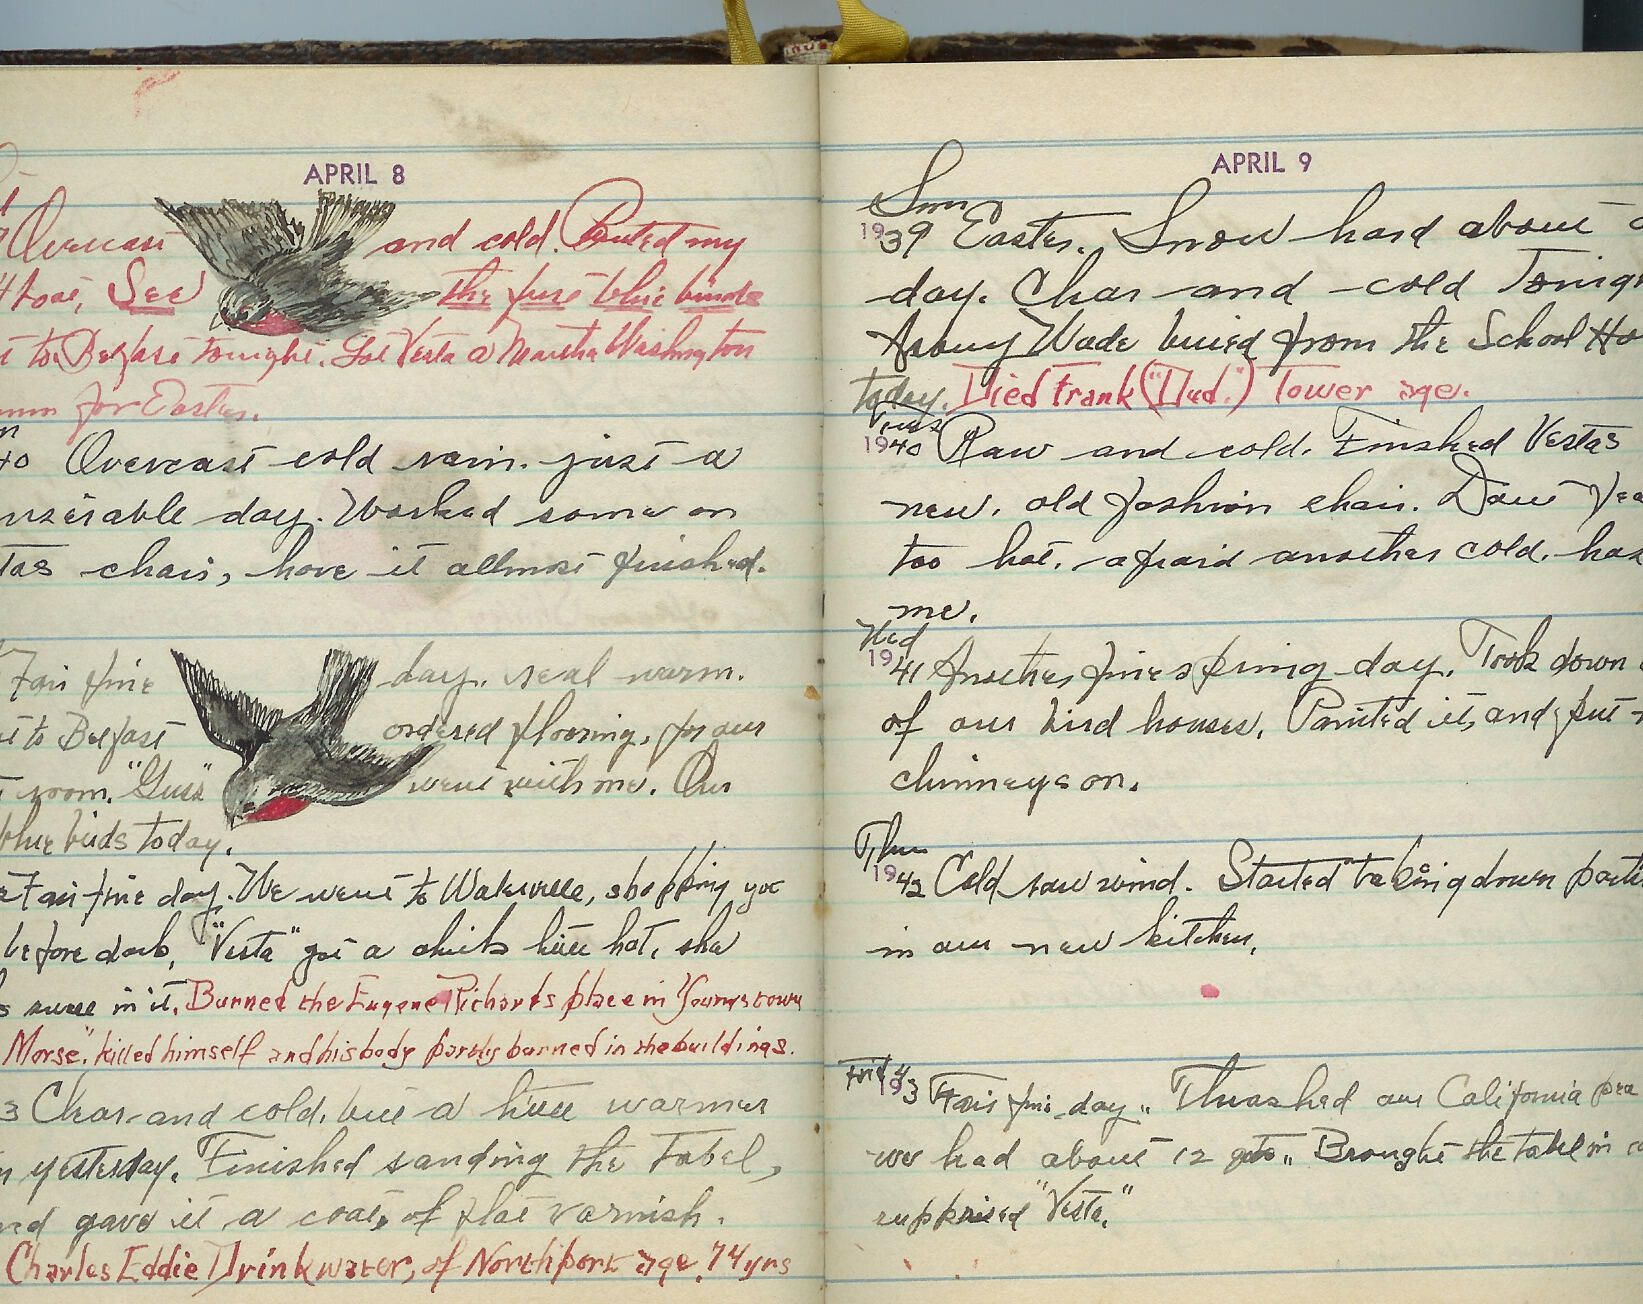 APRIL 8
Overcast and cold. Painted my
See the first blue birds
to Belfast tonight. Got Vesta a Martha Washington
for Easter.
40 Overcast cold rain. just a
day. Worked some on
tas chair, have it allmost finished.
Fair fine day. real warm.
to Belfast ordered flooring, for our
room. "Guss" went with me. Our
blue birds today.
Fair fine day. We went to Waterville, shopping got
before dark, "Vesta" got a little hat, she
in it. Burned the Eugene Richards place in Youngstown
Morse", killed himself and his body partly burned in the buildings.
3 Clear and cold, but a little warmer
yesterday. Finished sanding the tabel,
and gave it a coat, of flat varnish.
Charles Eddie Drinkwater, of Northport age, 74 yrs
APRIL 9
Sun
1939 Easter. Snow hard about
day. Clear and cold
Wade buried from the School
today. Died Frank ("Dud.") Tower age.
1940 Raw and cold. Finished Vestas
new, old fashion chair. Dont
too hot. afraid another cold. has
me.
Wed
1941 Another fine spring day. Took down
of our bird houses, Painted it, and put
chimneys on.
Thur
1942 Cold raw wind. Started taking down
in our new kitchen.
Frid
1943 Fair fine day. Thrashed our California pea
we had about 12 qts. Brought the tabel in
supprised "Vesta."